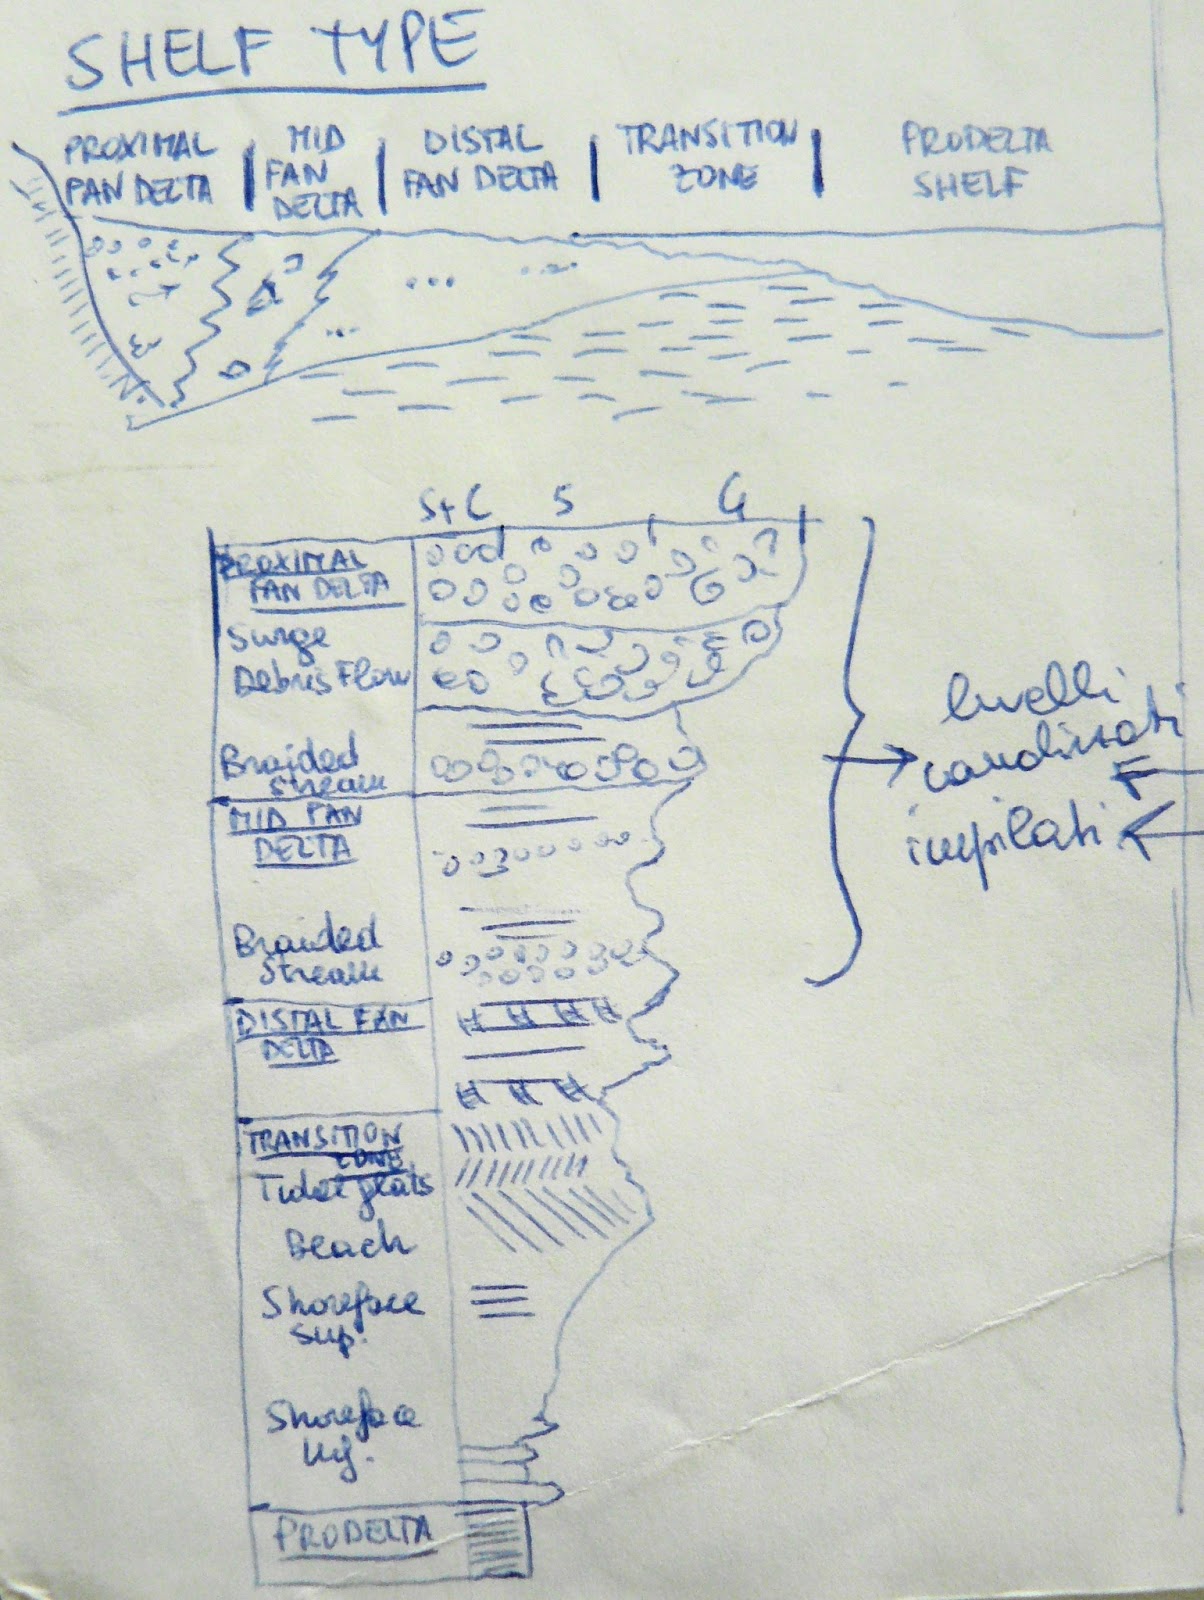 SHELF TYPE
PROXIMAL FAN DELTA
MID FAN DELTA
DISTAL FAN DELTA
TRANSITION ZONE
PRODELTA SHELF
S+C S G
PROXIMAL
FAN DELTA
Surge
Debris Flow
Braided
stream
MID FAN
DELTA
Braided
Stream
DISTAL FAN
DELTA
TRANSITION
ZONE
Tidal flats
Beach
Shoreface
sup.
Shoreface
inf.
PRODELTA
livelli
canalizzati
impilati